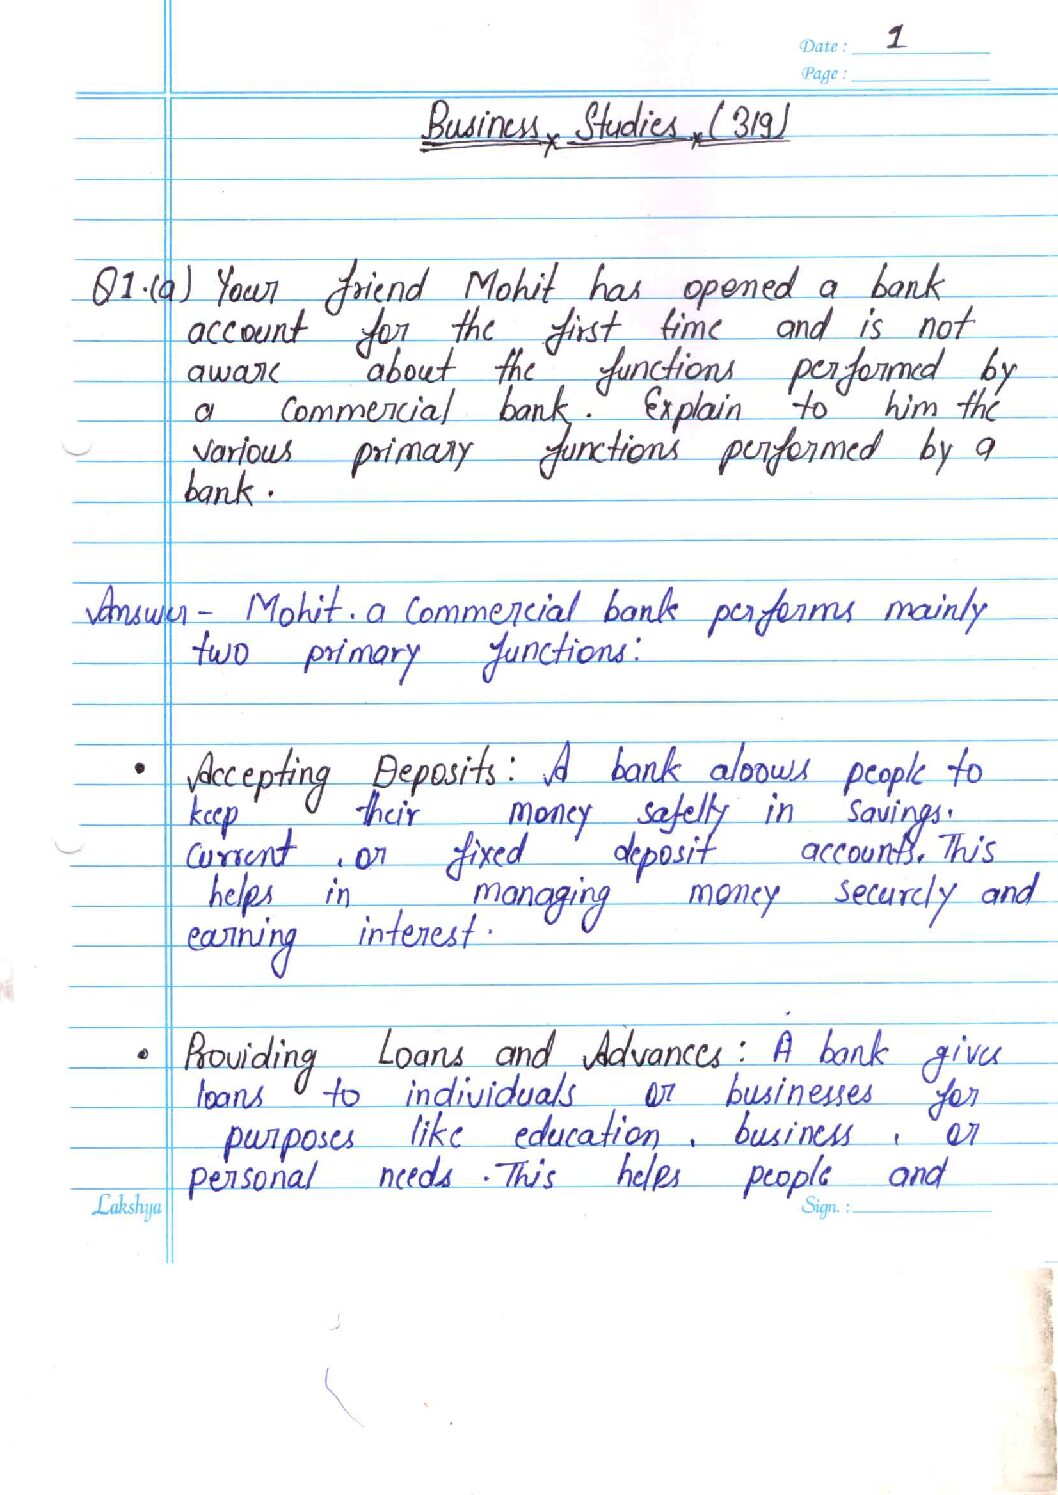 Date : 1
Page :
Business Studies (319)
Q1.(a) Your friend Mohit has opened a bank
account for the first time and is not
aware about the functions performed by
a commercial bank. Explain to him the
various primary functions performed by a
bank.
Answer - Mohit. a commercial bank performs mainly
two primary functions:
• Accepting Deposits: A bank aloows people to
keep their money safelly in savings.
current , or fixed deposit accounts. This
helps in managing money securely and
earning interest.
• Providing Loans and Advances: A bank gives
loans to individuals or businesses for
purposes like education , business , or
personal needs. This helps people and
Lakshya Sign. :